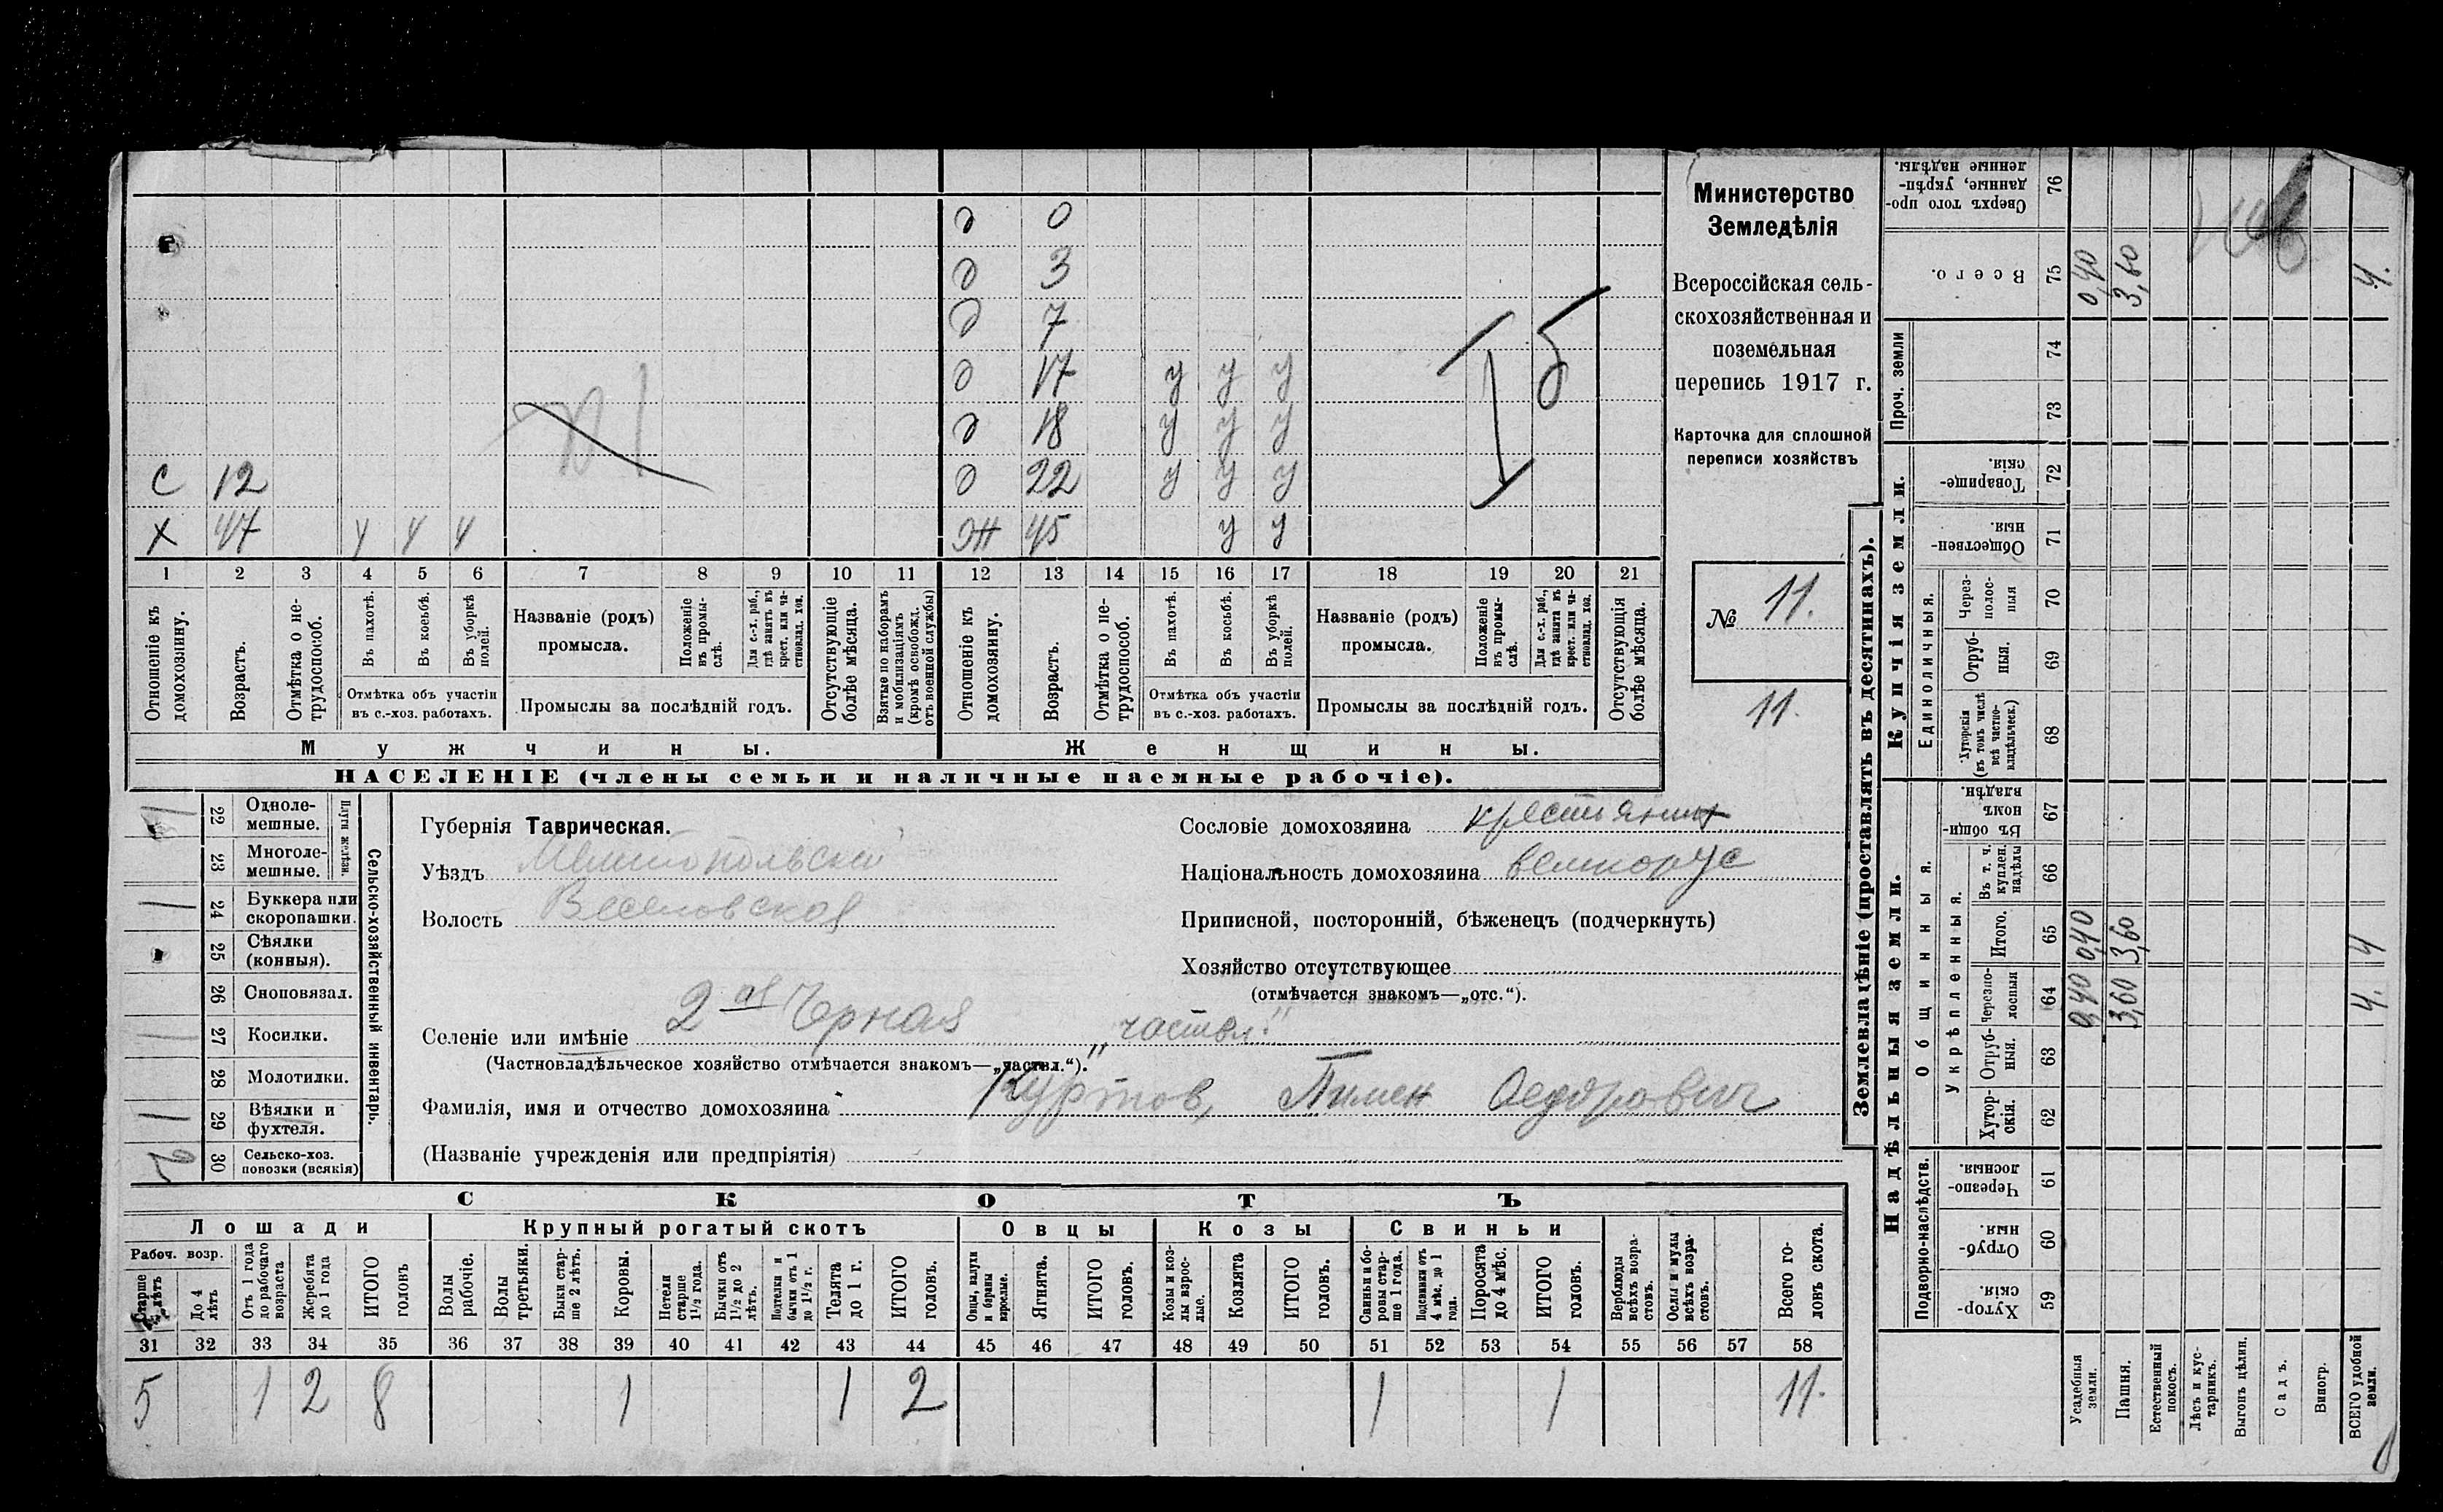 д 0
д 3
д 7
д 17 у у у
д 18 у у у
С 12 д 22 у у у
Х 47 у у у ж 45 у у
Iб
1 2 3 4 5 6 7 8 9 10 11 12 13 14 15 16 17 18 19 20 21
Отношеніе къ домохозяину.
Возрастъ.
Отмѣтка о нетрудоспособ.
Въ пахотѣ.
Въ косьбѣ.
Въ уборкѣ полей.
Отмѣтка объ участіи
въ с.-хоз. работахъ.
Названіе (родъ)
промысла.
Положеніе въ промыслѣ.
Для с.-х. раб., гдѣ занятъ въ крест. или частновлад. хоз.
Промыслы за послѣдній годъ.
Отсутствующіе болѣе мѣсяца.
Взятые по наборамъ и мобилизаціямъ (кромѣ освобожд. отъ военной службы)
Отношеніе къ домохозяину.
Возрастъ.
Отмѣтка о нетрудоспособ.
Въ пахотѣ.
Въ косьбѣ.
Въ уборкѣ полей.
Отмѣтка объ участіи
въ с.-хоз. работахъ.
Названіе (родъ)
промысла.
Положеніе въ промыслѣ.
Для с.-х. раб., гдѣ занята въ крест. или частновлад. хоз.
Промыслы за послѣдній годъ.
Отсутствующія болѣе мѣсяца.
Мужчины. Женщины.
НАСЕЛЕНІЕ (члены семьи и наличные наемные рабочіе).
Министерство
Земледѣлія
Всероссійская сель-
скохозяйственная и
поземельная
перепись 1917 г.
Карточка для сплошной
переписи хозяйствъ
№ 11.
11.
Сельско-хозяйственный инвентарь.
Плуги желѣзн.
1 22 Одноле-
мешные.
23 Многоле-
мешные.
1 24 Буккера или
скоропашки.
25 Сѣялки
(конныя).
26 Сноповязал.
1 27 Косилки.
28 Молотилки.
1 29 Вѣялки и
фухтеля.
2 30 Сельско-хоз.
повозки (всякія)
Губернія Таврическая.
Уѣздъ Мелитопольскій
Волость Веселовская
Селеніе или имѣніе 2ая Черная „частвл.“
(Частновладѣльческое хозяйство отмѣчается знакомъ—„частвл.“).
Фамилія, имя и отчество домохозяина Куртов, Пимен Федорович
(Названіе учрежденія или предпріятія)
Сословіе домохозяина крестьянин
Національность домохозяина великорус
Приписной, посторонній, бѣженецъ (подчеркнуть)
Хозяйство отсутствующее
(отмѣчается знакомъ—„отс.“).
СКОТЪ
Лошади
Рабоч. возр.
До 4 лѣтъ
Отъ 1 года до рабочаго возраста
Жеребята до 1 года
ИТОГО головъ
Крупный рогатый скотъ
Волы рабочіе.
Волы третьяки.
Быки старше 2 лѣтъ.
Коровы.
Нетели старше 1½ года.
Бычки отъ 1½ до 2 лѣтъ.
Подтелки и бычки отъ 1 до 1½ г.
Телята до 1 г.
ИТОГО головъ.
Овцы
Овцы, валухи и бараны взрослые.
Ягнята.
ИТОГО головъ.
Козы
Козы и козлы взрослые.
Козлята
ИТОГО головъ.
Свиньи
Свиньи и боровы старше 1 года.
Подсвинки отъ 4 мѣс. до 1 года.
Поросята до 4 мѣс.
ИТОГО головъ.
Верблюды всѣхъ возрастовъ.
Ослы и мулы всѣхъ возрастовъ.
Всего головъ скота.
31 32 33 34 35 36 37 38 39 40 41 42 43 44 45 46 47 48 49 50 51 52 53 54 55 56 57 58
5 1 2 8 1 1 2 1 1 11.
Землевладѣніе (проставлять въ десятинахъ).
Купчія земли.
Надѣльныя земли.
Сверхъ того проданные, укрѣпленные надѣлы. 76
Всего. 75 0,40 3,60 4.
Проч. земли 74
73
Товарищескія. 72
Общественныя. 71
Единоличныя.
Черезполосныя 70
Отрубныя. 69
Хуторскія (въ томъ числѣ всѣ частновладѣльческ.) 68
Общинныя.
Въ общинномъ владѣн. 67
Укрѣпленныя.
Въ т. ч. куплен. надѣлы 66
Итого. 65 0,40 3,60 4
Черезполосныя 64 0,40 3,60 4.
Отрубныя. 63
Хуторскія. 62
Подворно-наслѣдств.
Черезполосныя. 61
Отрубныя. 60
Хуторскія. 59
Усадебныя земли.
Пашня.
Естественный покосъ.
Лѣсъ и кустарникъ.
Выгонъ цѣлин.
Садъ.
Виногр.
ВСЕГО удобной земли.